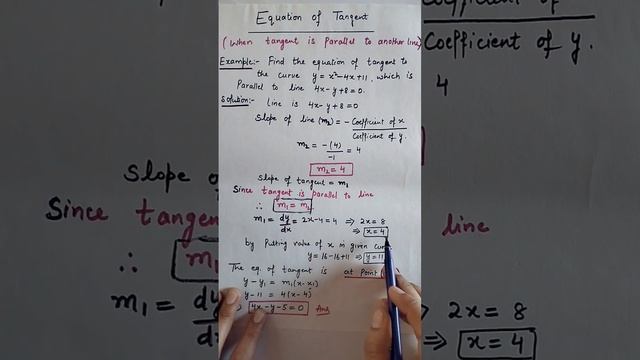 Equation of Tangent
(When tangent is Parallel to another line)
Example:- Find the equation of tangent to
the curve y = x²-4x+11, which is
Parallel to line 4x-y+8=0.
Solution:- Line is 4x-y+8=0
Slope of line (m₂) = - Coefficient of x
Coefficient of y
m₂ = -(4)
-1
= 4
m₂ = 4
Slope of tangent = m₁
Since tangent is parallel to line
∴ m₁ = m₂
m₁ = dy/dx = 2x-4 = 4 ⇒ 2x = 8
⇒ x = 4
by Putting value of x in given
y = 16-16+11 ⇒ y = 11
The eq. of tangent is at Point
y-y₁ = m₁(x-x₁)
y-11 = 4(x-4)
4x-y-5=0 Ans